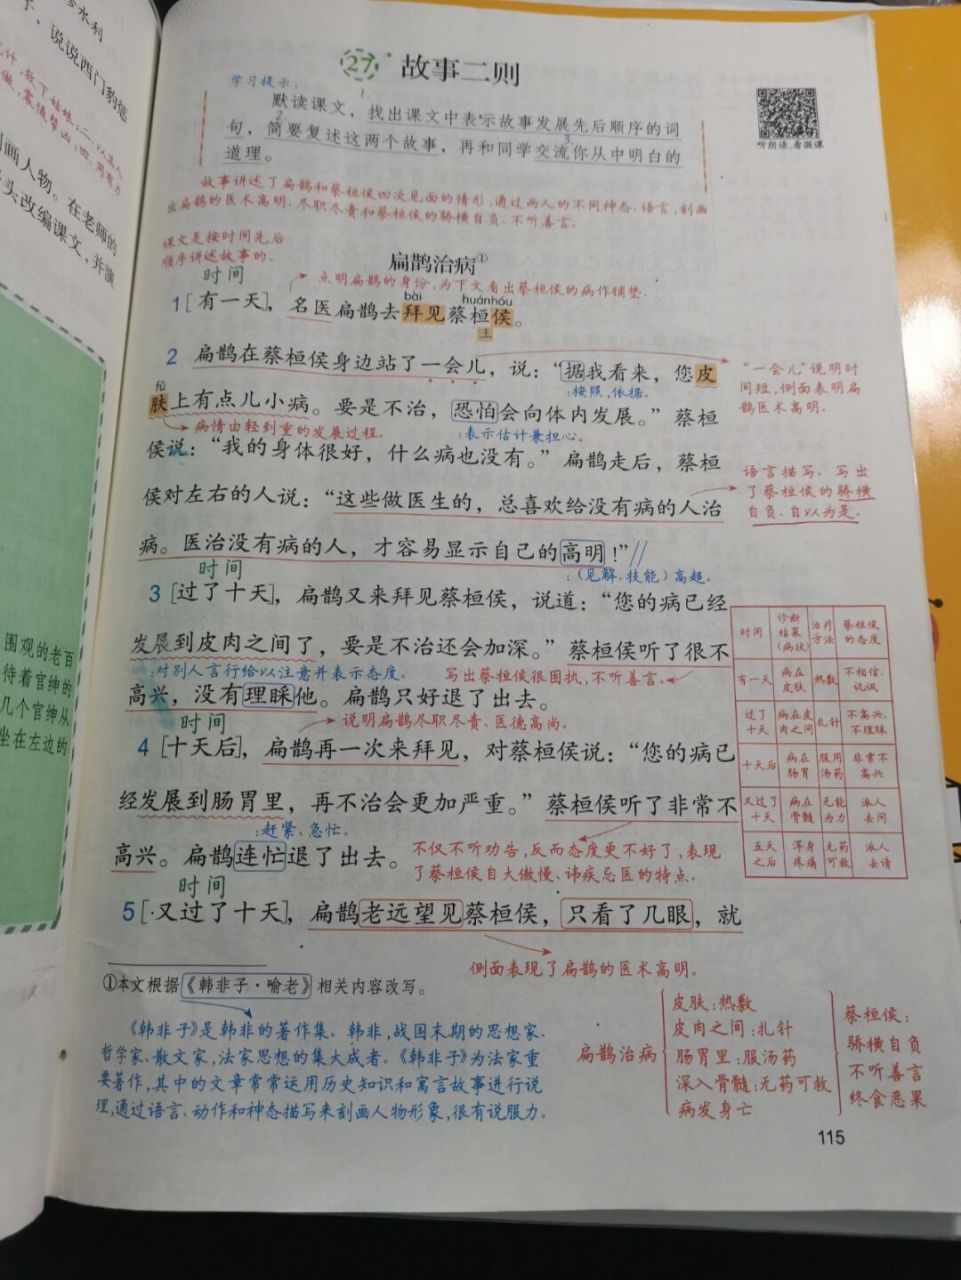 水利
，说说西门豹惩
画人物。在老师的
头改编课文，并演
围观的老百
待着官绅的
几个官绅从
坐在左边的
27 故事二则
学习提示：
1.
默读课文，找出课文中表示故事发展先后顺序的词
2.
3
句，简要复述这两个故事，再和同学交流你从中明白的
道理。
听朗读、看微课
故事讲述了扁鹊和蔡桓侯四次见面的情形，通过两人的不同神态、语言，刻画
出扁鹊的医术高明、尽职尽责和蔡桓侯的骄横自负、不听善言。
课文是按时间先后
顺序讲述故事的。
扁鹊治病①
时间
点明扁鹊的身份，为下文看出蔡桓侯的病作铺垫。
bài huánhóu
1[有一天]，名医扁鹊去拜见蔡桓侯。
王
2 扁鹊在蔡桓侯身边站了一会儿，说：“据我看来，您皮
:按照、依据。
“一会儿”说明时
间短，侧面表明扁
鹊医术高明。
fū
肤上有点儿小病。要是不治，恐怕会向体内发展。”蔡桓
病情由轻到重的发展过程。
:表示估计兼担心。
侯说：“我的身体很好，什么病也没有。”扁鹊走后，蔡桓
语言描写，写出
了蔡桓侯的骄横
自负、自以为是。
侯对左右的人说：“这些做医生的，总喜欢给没有病的人治
病。医治没有病的人，才容易显示自己的高明！”//
时间
:(见解、技能)高超。
3 [过了十天]，扁鹊又来拜见蔡桓侯，说道：“您的病已经
发展到皮肉之间了，要是不治还会加深。”蔡桓侯听了很不
:对别人言行给以注意并表示态度。
写出蔡桓侯很固执，不听善言。
高兴，没有理睬他。扁鹊只好退了出去。
时间
说明扁鹊尽职尽责、医德高尚。
4 [十天后]，扁鹊再一次来拜见，对蔡桓侯说：“您的病已
经发展到肠胃里，再不治会更加严重。”蔡桓侯听了非常不
:赶紧、急忙。
高兴。扁鹊连忙退了出去。
不仅不听劝告，反而态度更不好了，表现
了蔡桓侯自大傲慢、讳疾忌医的特点。
时间
5[又过了十天]，扁鹊老远望见蔡桓侯，只看了几眼，就
侧面表现了扁鹊的医术高明。
时间 诊断结果(病状) 治疗方法 蔡桓侯的态度
有一天 病在皮肤 热敷 不相信、讥讽
过了十天 病在皮肉之间 扎针 不高兴、不理睬
十天后 病在肠胃 服用汤药 非常不高兴
又过了十天 病在骨髓 无能为力 派人去问
五天之后 浑身疼痛 无药可救 派人去请
①本文根据《韩非子·喻老》相关内容改写。
《韩非子》是韩非的著作集。韩非，战国末期的思想家、
哲学家、散文家，法家思想的集大成者。《韩非子》为法家重
要著作，其中的文章常常运用历史知识和寓言故事进行说
理，通过语言、动作和神态描写来刻画人物形象，很有说服力。
扁鹊治病
皮肤：热敷
皮肉之间：扎针
肠胃里：服汤药
深入骨髓：无药可救
病发身亡
蔡桓侯：
骄横自负
不听善言
终食恶果
115